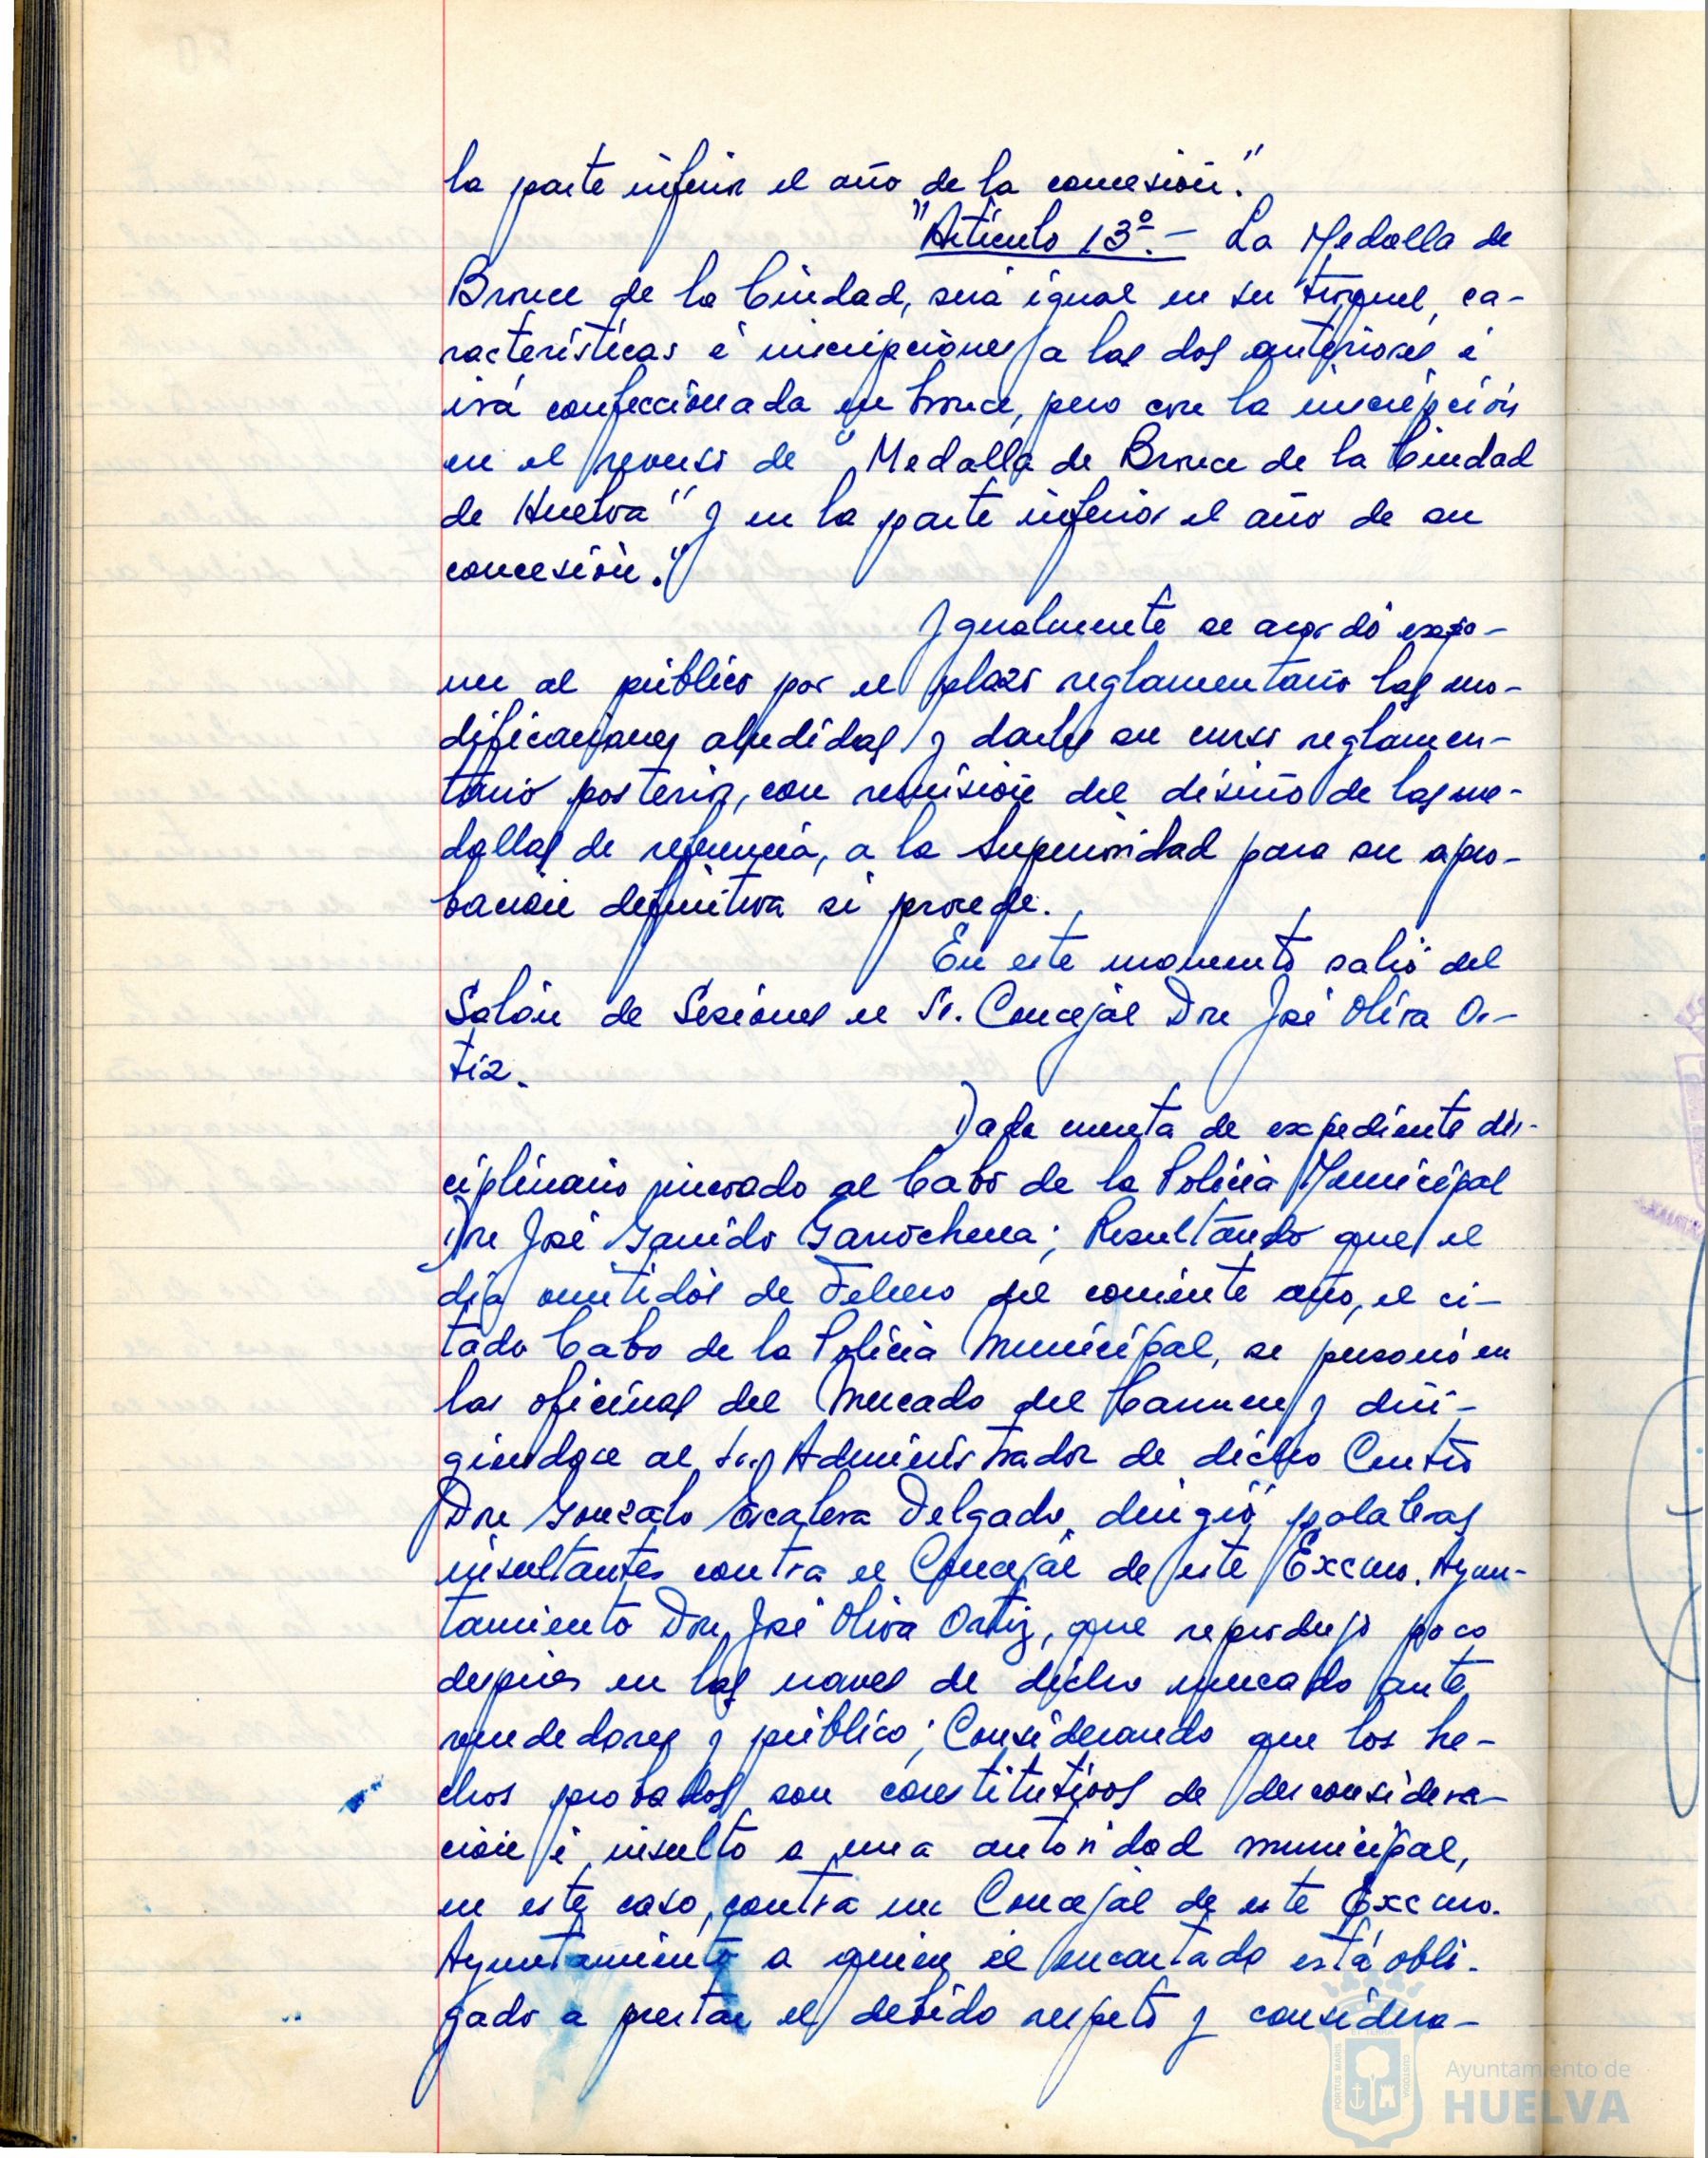 la parte inferior el año de la concesión."
"Artículo 13º.- La Medalla de
Bronce de la Ciudad, será igual en su troquel, ca-
racterísticas é inscripciones a las dos anteriores é
irá confeccionada en bronce, pero con la inscripción
en el reverso de "Medalla de Bronce de la Ciudad
de Huelva" y en la parte inferior el año de su
concesión."
Igualmente se acordó expo-
ner al público por el plazo reglamentario las mo-
dificaciones aludidas y darles su curso reglamen-
tario posterior, con remisión del diseño de las me-
dallas de referencia, a la Superioridad para su apro-
bación definitiva si procede.
En este momento salió del
Salón de Sesiones el Sr. Concejal Don José Oliva Or-
tiz.
Dada cuenta de expediente dis-
ciplinario incoado al Cabo de la Policía Municipal
Don José Garrido Garrochena; Resultando que el
día veintidós de Febrero del corriente año, el ci-
tado Cabo de la Policía Municipal, se personó en
las oficinas del Mercado del Carmen y diri-
giéndose al Sr. Administrador de dicho Centro
Don Gonzalo Escalera Delgado, dirigió palabras
insultantes contra el Concejal de este Excmo. Ayun-
tamiento Don José Oliva Ortiz, que reprodujo poco
después en las naves de dicho mercado ante
vendedores y público; Considerando que los he-
chos probados son constitutivos de desconsidera-
ción é insulto a una autoridad municipal,
en este caso, contra un Concejal de este Excmo.
Ayuntamiento a quien el encartado está obli-
gado a prestar el debido respeto y considera-
Ayuntamiento de
HUELVA
PORTUS MARIS
ET TERRA
CUSTODIA